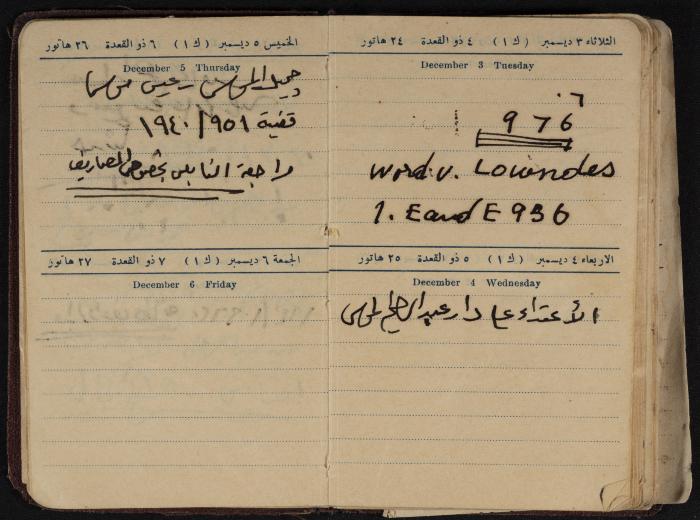 الثلاثاء ٣ ديسمبر (ك ١) ٤ ذو القعدة ٢٤ هاتور
December 3 Tuesday
٠٦
976
Word. v. Lowndes
1. E and E 956
الاربعاء ٤ ديسمبر (ك ١) ٥ ذو القعدة ٢٥ هاتور
December 4 Wednesday
الأعتداء على دار عبد
الخميس ٥ ديسمبر (ك ١) ٦ ذو القعدة ٢٦ هاتور
December 5 Thursday
قضية ٩٥١/١٩٤٠
مراجعة النابلسي بخصوص المصاريف
الجمعة ٦ ديسمبر (ك ١) ٧ ذو القعدة ٢٧ هاتور
December 6 Friday